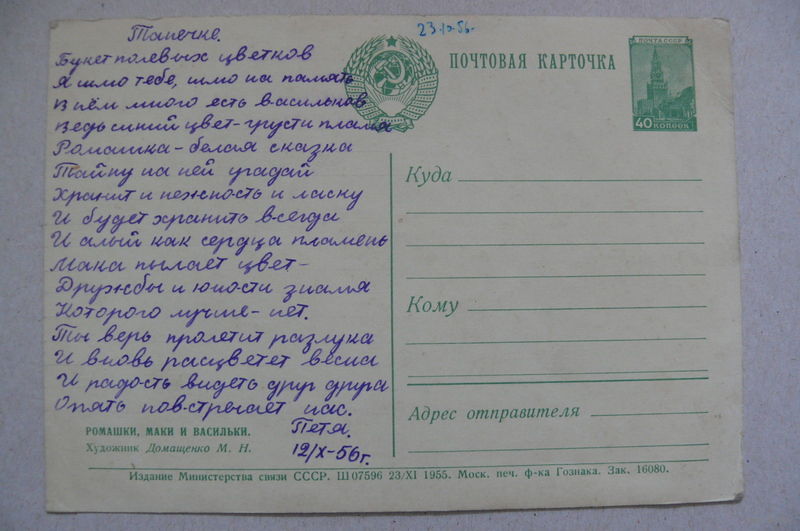 23/X-56.
Танечке.
Букет полевых цветков
Я шлю тебе, шлю на память
В нём много есть васильков
Ведь синий цвет-грусти пламя
Ромашка-белая сказка
Тайну на ней угадай
Хранит и нежность и ласку
И будет хранить всегда
И алый как сердца пламень
Мака пылает цвет-
Дружбы и юности знамя
Которого лучше-нет.
Ты верь пролетит разлука
И вновь расцветет весна
И радость видеть друг друга
Опять повстречает нас.
Петя.
12/X-56г.
РОМАШКИ, МАКИ И ВАСИЛЬКИ.
Художник Домащенко М. Н.
ПОЧТОВАЯ КАРТОЧКА
ПОЧТА СССР
40 КОПЕЕК
Куда
Кому
Адрес отправителя
Издание Министерства связи СССР. Ш 07596 23/XI 1955. Моск. печ. ф-ка Гознака. Зак. 16080.